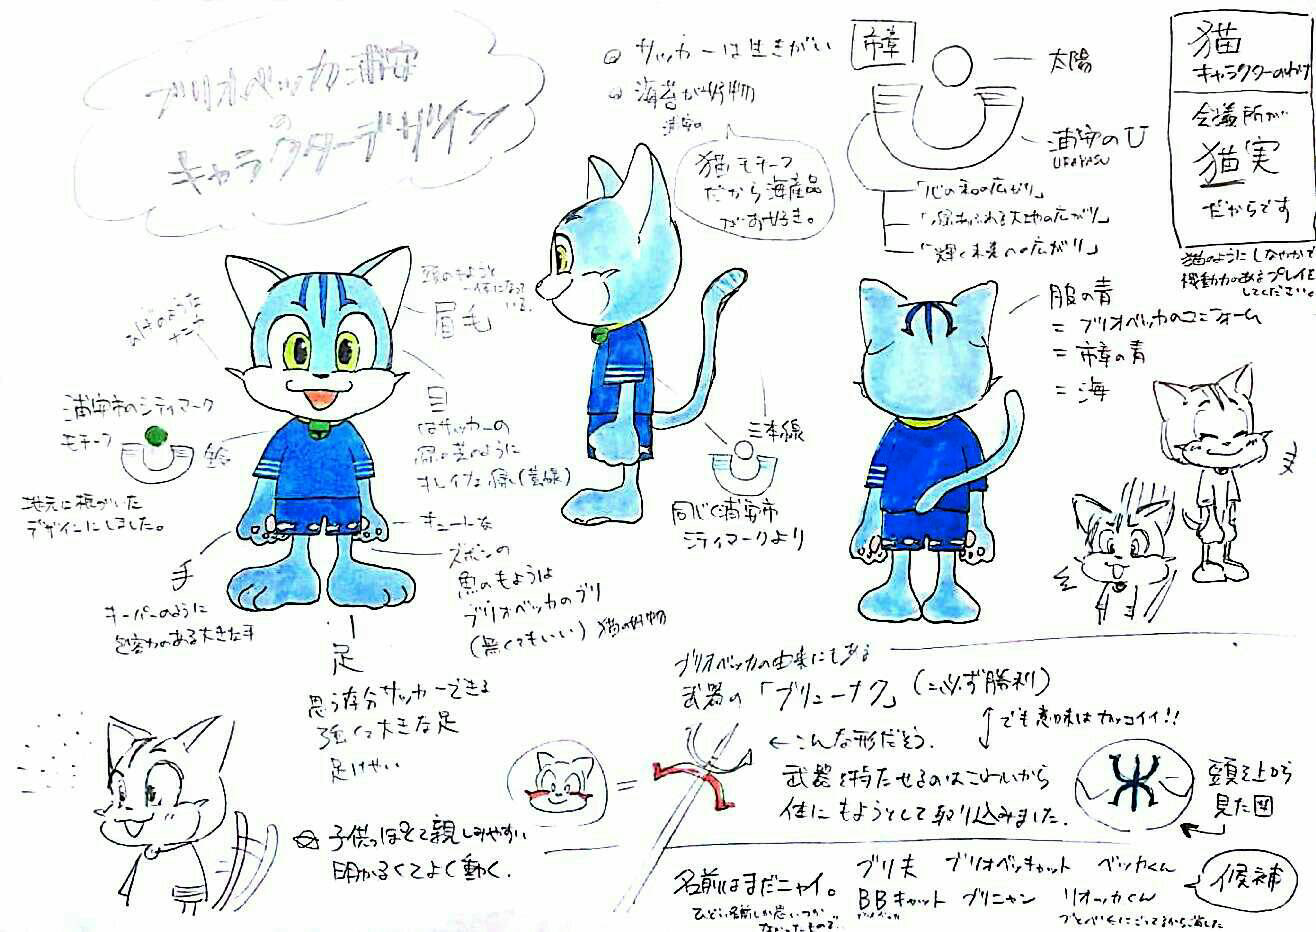 ブリオベッカ浦安
の
キャラクターデザイン
◎ サッカーは生きがい
◎ 海苔が好物
浦安の
猫モチーフ
だから海産品
がお好き。
市章
太陽
浦安のU
URAYASU
「心の和の広がり」
「緑あふれる大地の広がり」
「輝く未来への広がり」
猫
キャラクターのわけ
会議所が
猫実
だからです
猫のようにしなやかで
機動力のあるプレイを
してください。
頭のもようと
一体になって
いる。
眉毛
ひげのような
浦安市のシティマーク
モチーフ
鈴
地元に根づいた
デザインにしました。
目
はサッカーの
キレイな緑(黄緑)
キュートな
ズボンの
魚のもようは
ブリオベッカのブリ
(無くてもいい) 猫の好物
手
キーパーのように
包容力のある大きな手
足
思う存分サッカーできる
強くて大きな足
三本線
同じく浦安市
シティマークより
服の青
= ブリオベッカのユニフォーム
= 市章の青
= 海
ブリオベッカの由来にもある
武器の「ブリューナク」(=必ず勝利)
←こんな形だそう。
でも意味はカッコイイ!!
武器を持たせるのはこわいから
体にもようとして取り込みました。
頭を上から
見た図
☆ 子供っぽくて親しみやすい
明かるくてよく動く。
名前はまだニャイ。
ひどい名前しか思いつか
なかったもので…
ブリ夫 ブリオベッキャット ベッカくん
BBキャット ブリニャン リオッカくん
候補